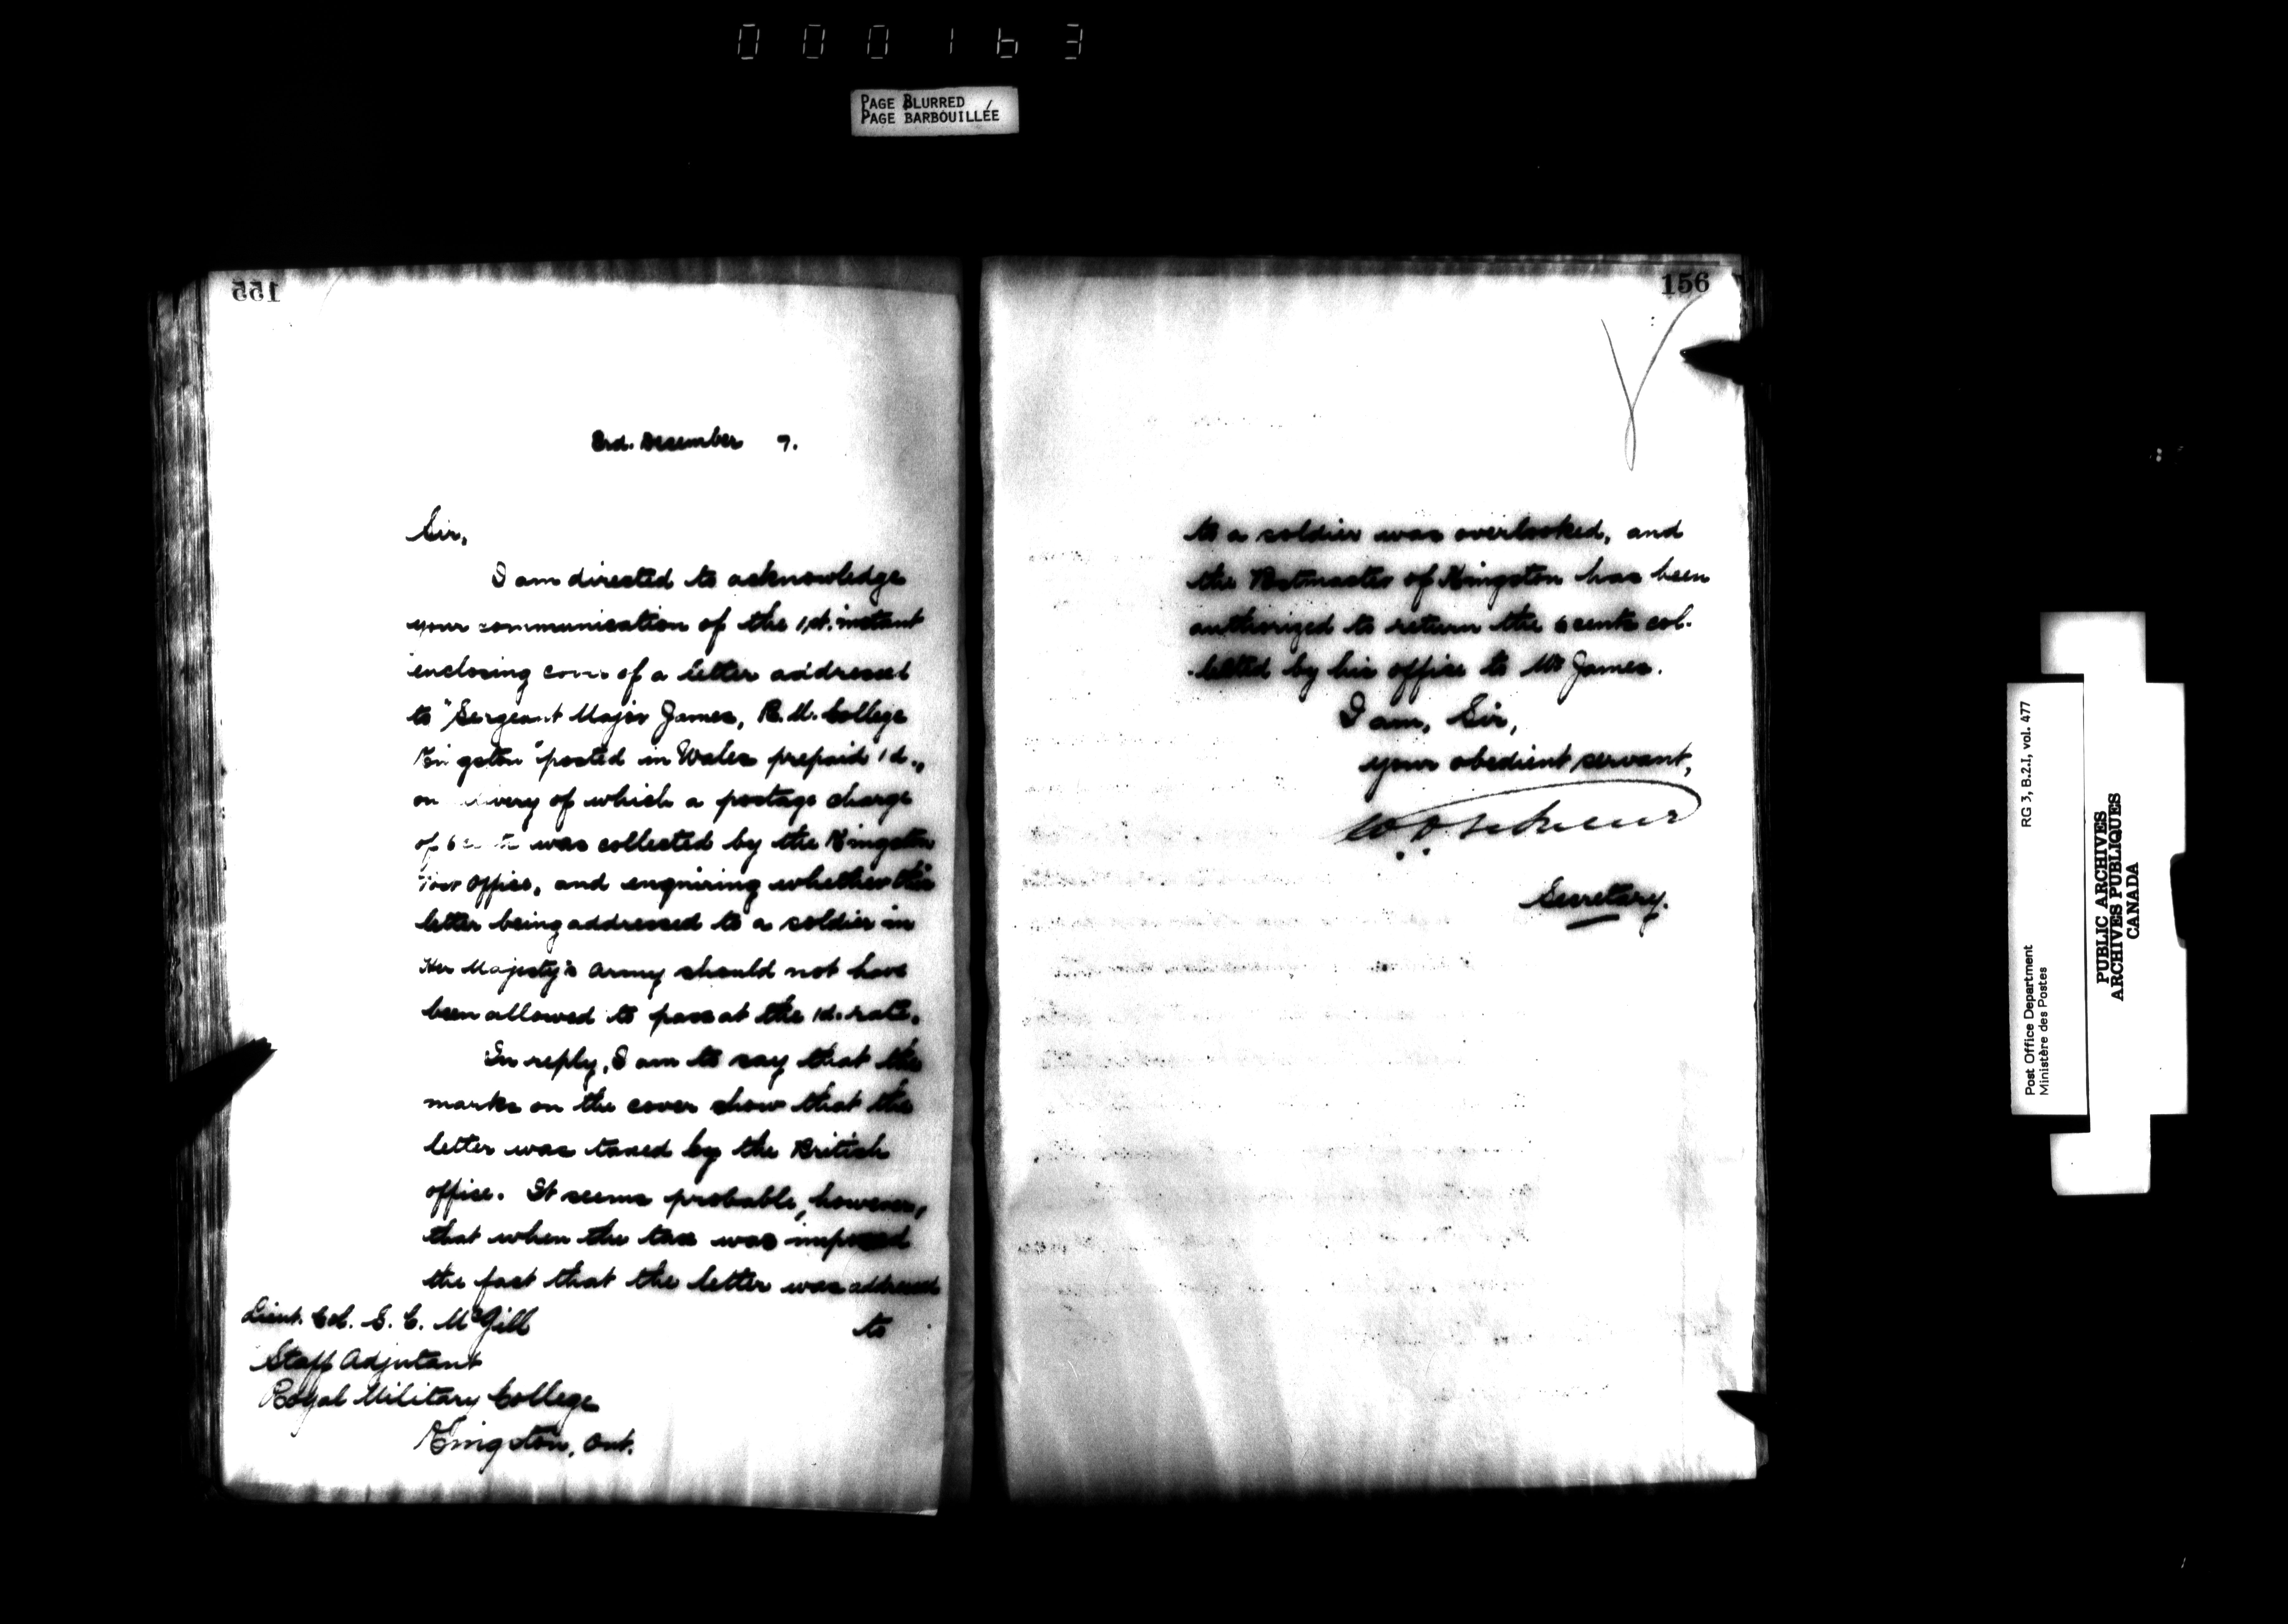 000163
PAGE BLURRED
PAGE BARBOUILLÉE
155
3rd. December 7.
Sir,
I am directed to acknowledge
your communication of the 1st. instant
enclosing cover of a letter addressed
to "Sergeant Major James, R. M. College
Kingston" posted in Wales prepaid 1d.,
on delivery of which a postage charge
of 6 cents was collected by the Kingston
Post Office, and enquiring whether this
letter being addressed to a soldier in
Her Majesty's Army should not have
been allowed to pass at the 1d. rate.
In reply, I am to say that the
marks on the cover show that the
letter was taxed by the British
office. It seems probable, however,
that when the tax was imposed
the fact that the letter was addressed
to
Lieut. Col. S. C. McGill
Staff Adjutant
Royal Military College
Kingston, Ont.
156
to a soldier was overlooked, and
the Postmaster of Kingston has been
authorized to return the 6 cents col-
-lected by his office to Mr James.
I am, Sir,
your obedient servant,
Secretary.
Post Office Department
Ministère des Postes
RG 3, B.2.I, vol. 477
PUBLIC ARCHIVES
ARCHIVES PUBLIQUES
CANADA